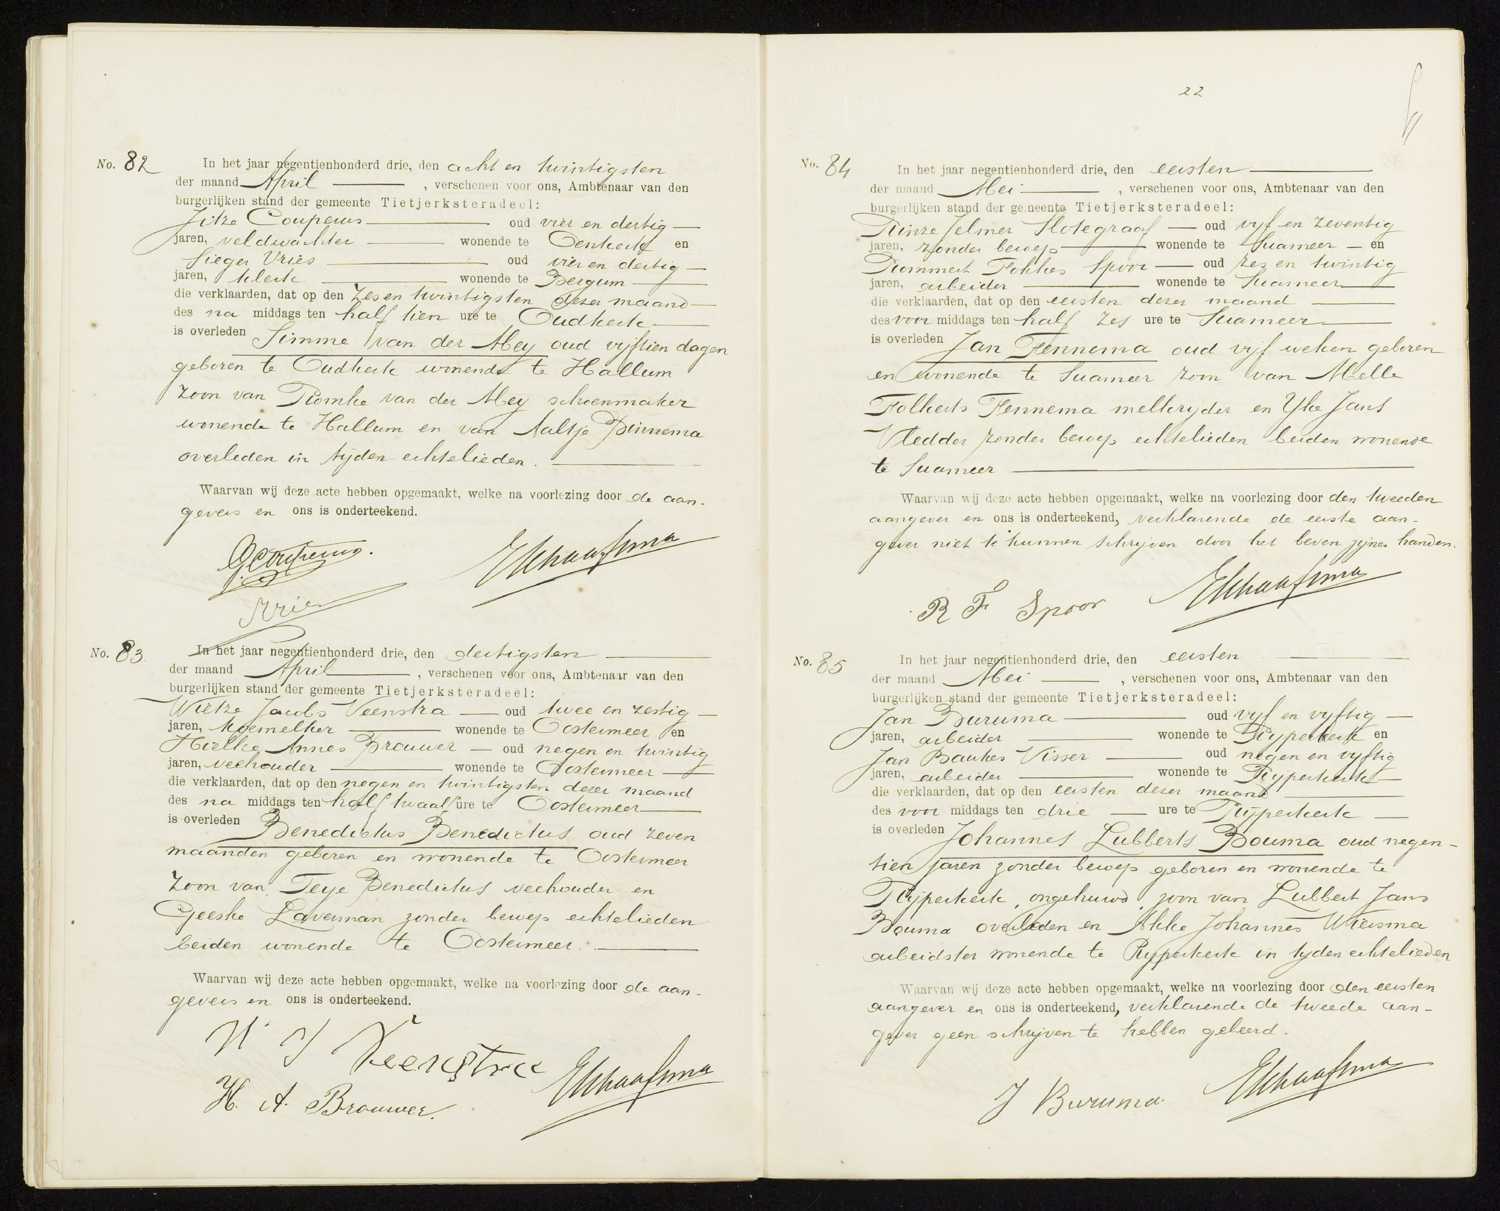 No. 82 In het jaar negentienhonderd drie, den acht en twintigsten
der maand April, verschenen voor ons, Ambtenaar van den
burgerlijken stand der gemeente Tietjerksteradeel:
Jitze Couperus oud vier en dertig
jaren, veldwachter wonende te Oenkerk en
Sieger Vries oud vier en dertig
jaren, klerk wonende te Bergum
die verklaarden, dat op den zes en twintigsten dezer maand
des na middags ten half tien ure te Oudkerk
is overleden Simme van der Mey oud vyftien dagen
geboren te Oudkerk wonende te Hallum
zoon van Romke van der Mey schoenmaker
wonende te Hallum en van Aaltje Binnema
overleden in tyden echtelieden.
Waarvan wij deze acte hebben opgemaakt, welke na voorlezing door de aan-
gevers en ons is onderteekend.
JCouperus. ESchaafsma
SVries
No. 83 In het jaar negentienhonderd drie, den dertigsten
der maand April, verschenen voor ons, Ambtenaar van den
burgerlijken stand der gemeente Tietjerksteradeel:
Wietze Jacobs Veenstra oud twee en zestig
jaren, koemelker wonende te Oostermeer en
Hielke Annes Brouwer oud negen en twintig
jaren, veehouder wonende te Oostermeer
die verklaarden, dat op den negen en twintigsten dezer maand
des na middags ten half twaalf ure te Oostermeer
is overleden Benedictus Benedictus oud zeven
maanden geboren en wonende te Oostermeer
zoon van Teye Benedictus veehouder en
Geeske Laverman zonder beroep echtelieden
beiden wonende te Oostermeer.
Waarvan wij deze acte hebben opgemaakt, welke na voorlezing door de aan-
gevers en ons is onderteekend.
W J Veenstra
H. A. Brouwer. ESchaafsma
22
No. 84 In het jaar negentienhonderd drie, den eersten
der maand Mei, verschenen voor ons, Ambtenaar van den
burgerlijken stand der gemeente Tietjerksteradeel:
Rinze Jelmer Slotegraaf oud vyf en zeventig
jaren, zonder beroep wonende te Suameer en
Rommert Fokkes Spoor oud zes en twintig
jaren, arbeider wonende te Suameer
die verklaarden, dat op den eersten dezer maand
des voor middags ten half zes ure te Suameer
is overleden Jan Fennema oud vyf weken geboren
en wonende te Suameer zoon van Melle
Folkerts Fennema melkryder en Yke Jans
Vledder zonder beroep echtelieden beiden wonende
te Suameer
Waarvan wij deze acte hebben opgemaakt, welke na voorlezing door den tweeden
aangever en ons is onderteekend, verklarende de eerste aan-
gever niet te kunnen schrijven door het beven zyner handen.
R F Spoor ESchaafsma
No. 85 In het jaar negentienhonderd drie, den eersten
der maand Mei, verschenen voor ons, Ambtenaar van den
burgerlijken stand der gemeente Tietjerksteradeel:
Jan Buruma oud vyf en vyftig
jaren, arbeider wonende te Ryperkerk en
Jan Baukes Visser oud negen en vyftig
jaren, arbeider wonende te Ryperkerk
die verklaarden, dat op den eersten dezer maand
des voor middags ten drie ure te Ryperkerk
is overleden Johannes Lubberts Bouma oud negen-
tien jaren zonder beroep geboren en wonende te
Ryperkerk, ongehuwd, zoon van Lubbert Jans
Bouma overleden en Akke Johannes Wiersma
arbeidster wonende te Ryperkerk in tyden echtelieden
Waarvan wij deze acte hebben opgemaakt, welke na voorlezing door den eersten
aangever en ons is onderteekend, verklarende de tweede aan-
gever geen schrijven te hebben geleerd.
J Buruma ESchaafsma